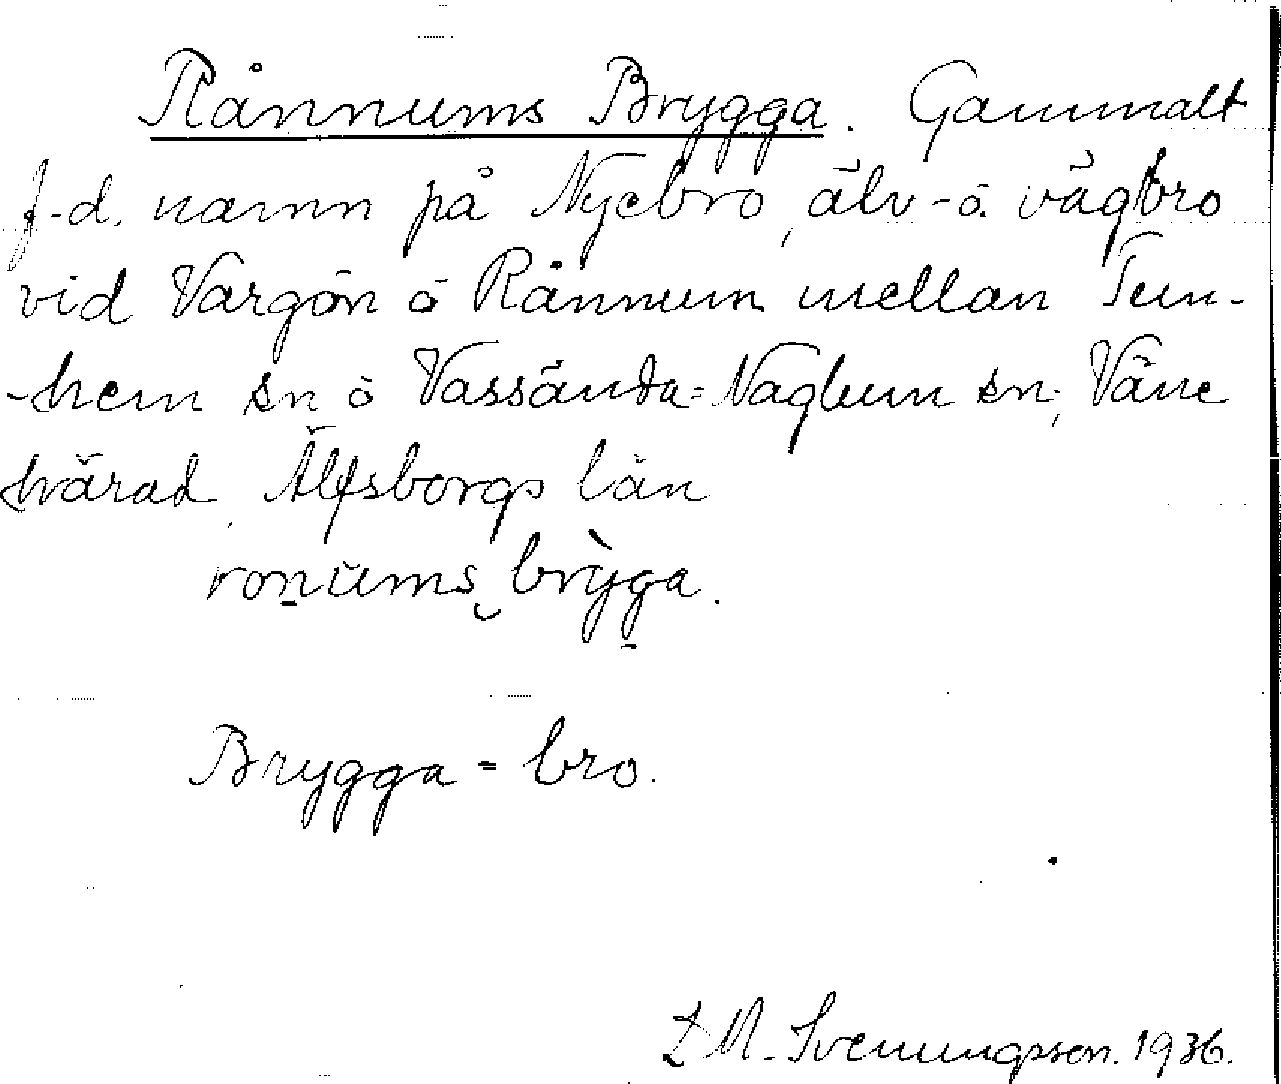 Rånnums Brygga. Gammalt
f.d. namn på Nyebro, älv- o. vägbro
vid Vargön o Rånnum mellan Tun-
-hem sn o Vassända=Naglum sn; Väne
härad, Älfsborgs län
ronums brỳga.
Brygga = bro.
M. Svenungsson. 1936.